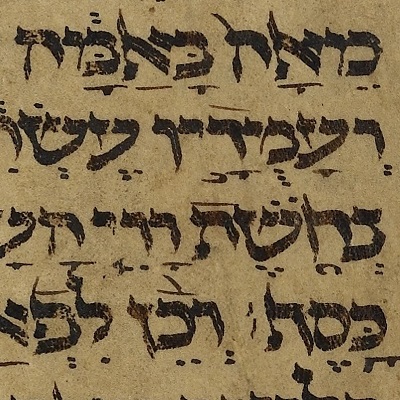 מֵאָה בָאַמָּה
וְעַמֻּדָיו עֶשְׂר
נְחֹשֶׁת וָוֵי הָעַ
כָּסֶף׃ וְכֵן לִפְא